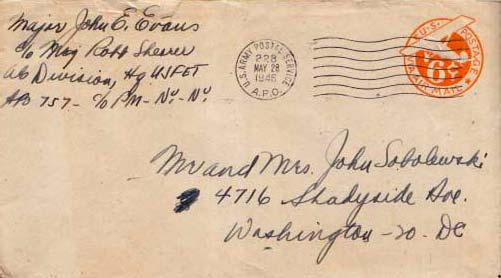 Major John E. Evans
c/o Maj Robt Shearer
AG Division, Hq USFET
APO 757 - c/o PM - N.Y. - N.Y.
U.S. ARMY POSTAL SERVICE
228
MAY 28
1946
A.P.O.
U.S. POSTAGE
6¢
VIA AIR MAIL
Mr and Mrs. John Sobolewski
4716 Shadyside Ave.
Washington - 20 - DC